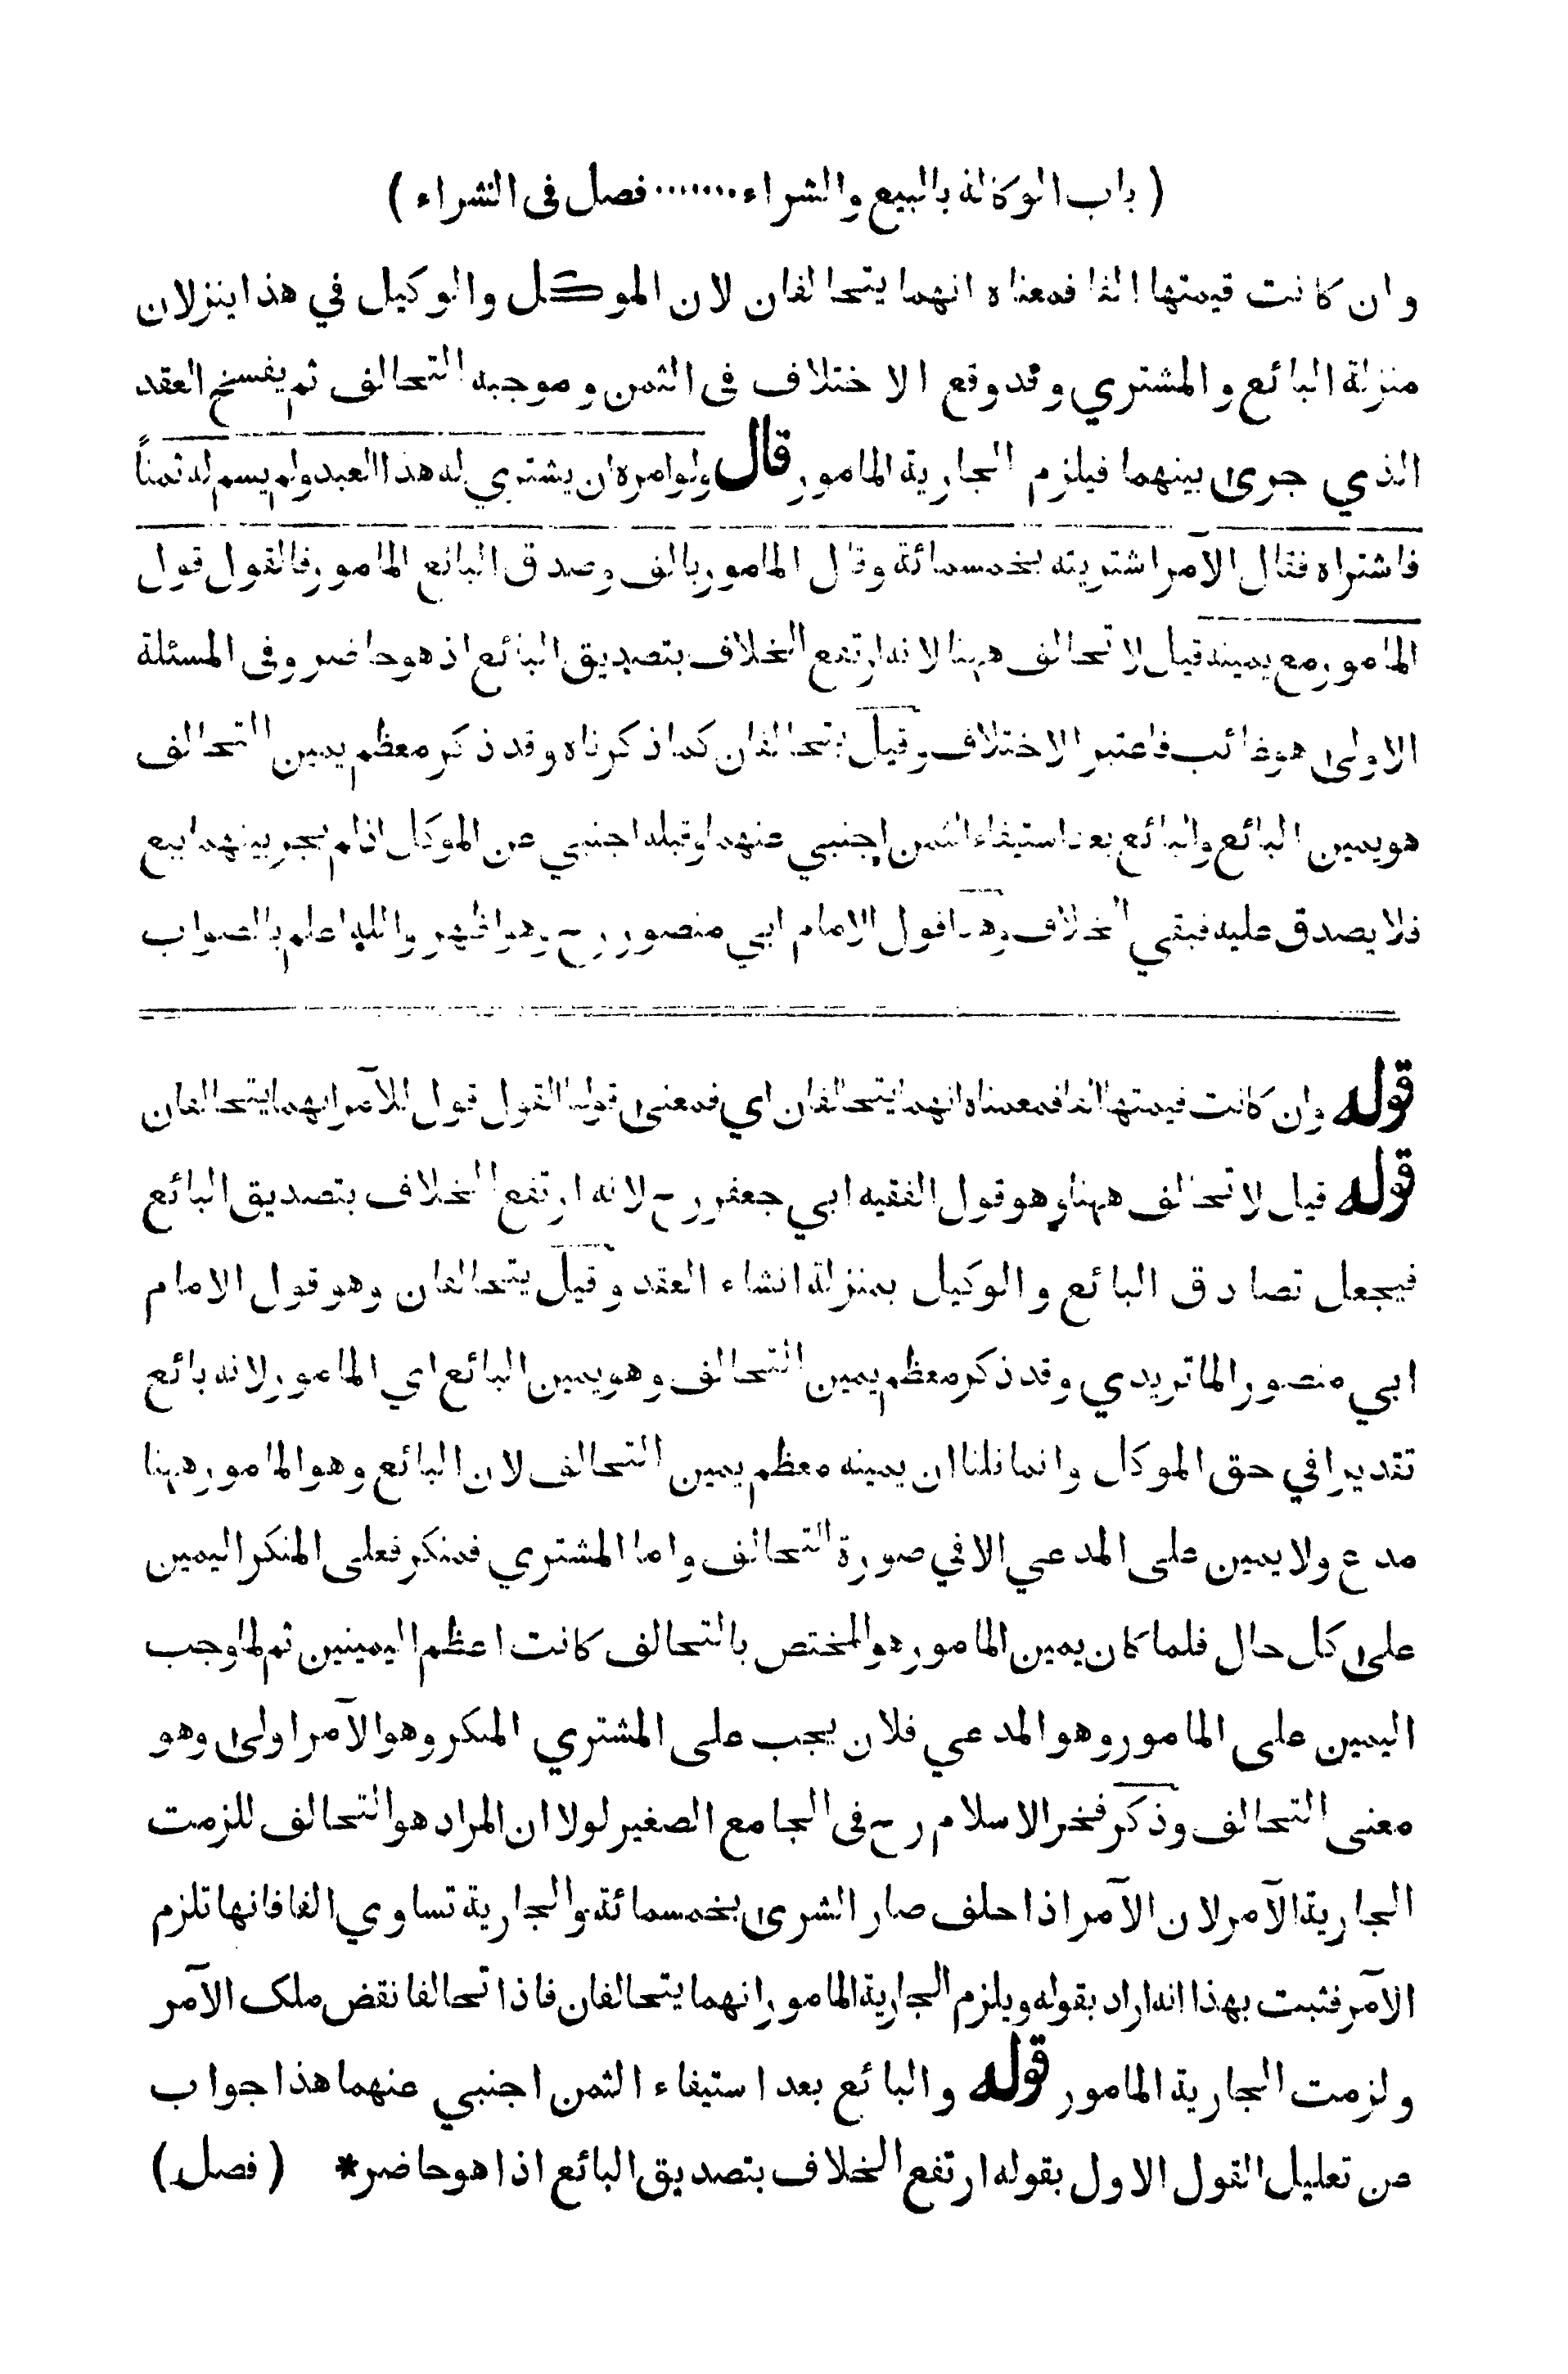 ( باب الوكالة بالبيع والشراء ······· فصل فى الشراء )
وان كانت قيمتها الفا فمعناه انهما يتحالفان لان الموكل والوكيل في هذا ينزلان
منزلة البائع والمشتري وقد وقع الاختلاف فى الثمن وموجبه التحالف ثم يفسخ العقد
الذي جرى بينهما فيلزم الجارية المامور قال ولو امره ان يشتري له هذا العبد ولم يسم له ثمناً
فاشتراه فقال الآمر اشتريته بخمسمائة وقال المامور بالف وصدق البائع المامور فالقول قول
المامور مع يمينه قيل لا تحالف ههنا لانه ارتفع الخلاف بتصديق البائع اذ هو حاضر وفى المسئلة
الاولى هو غائب فاعتبر الاختلاف وقيل يتحالفان كما ذكرناه وقد ذكر معظم يمين التحالف
هو يمين البائع والبائع بعد استيفاء الثمن اجنبي عنهما وقبله اجنبي عن الموكل اذ لم يجر بينهما بيع
فلا يصدق عليه فبقي الخلاف وهذا قول الامام ابي منصور رح وهو اظهر والله اعلم بالصواب
قوله وان كانت قيمتها الفا فمعناه انهما يتحالفان اي فمعنى قوله القول قول للآمر انهما يتحالفان
قوله قيل لا تحالف ههنا وهو قول الفقيه ابي جعفر رح لانه ارتفع الخلاف بتصديق البائع
فيجعل تصادق البائع والوكيل بمنزلة انشاء العقد وقيل يتحالفان وهو قول الامام
ابي منصور الماتريدي وقد ذكر معظم يمين التحالف وهو يمين البائع اي المامور لانه بائع
تقديرا في حق الموكل وانما قلنا ان يمينه معظم يمين التحالف لان البائع وهو المامور ههنا
مدع ولا يمين على المدعي الا في صورة التحالف واما المشتري فمنكر فعلى المنكر اليمين
على كل حال فلما كان يمين المامور هو المختص بالتحالف كانت اعظم اليمينين ثم لما وجب
اليمين على المامور وهو المدعي فلان يجب على المشتري المنكر وهو الآمر اولى وهو
معنى التحالف وذكر فخر الاسلام رح فى الجامع الصغير لولا ان المراد هو التحالف للزمت
الجارية الآمر لان الآمر اذا حلف صار الشرى بخمسمائة والجارية تساوي الفا فانها تلزم
الآمر فثبت بهذا انه اراد بقوله ويلزم الجارية المامور انهما يتحالفان فاذا تحالفا نقض ملك الآمر
ولزمت الجارية المامور قوله والبائع بعد استيفاء الثمن اجنبي عنهما هذا جواب
عن تعليل القول الاول بقوله ارتفع الخلاف بتصديق البائع اذا هو حاضر * ( فصل )